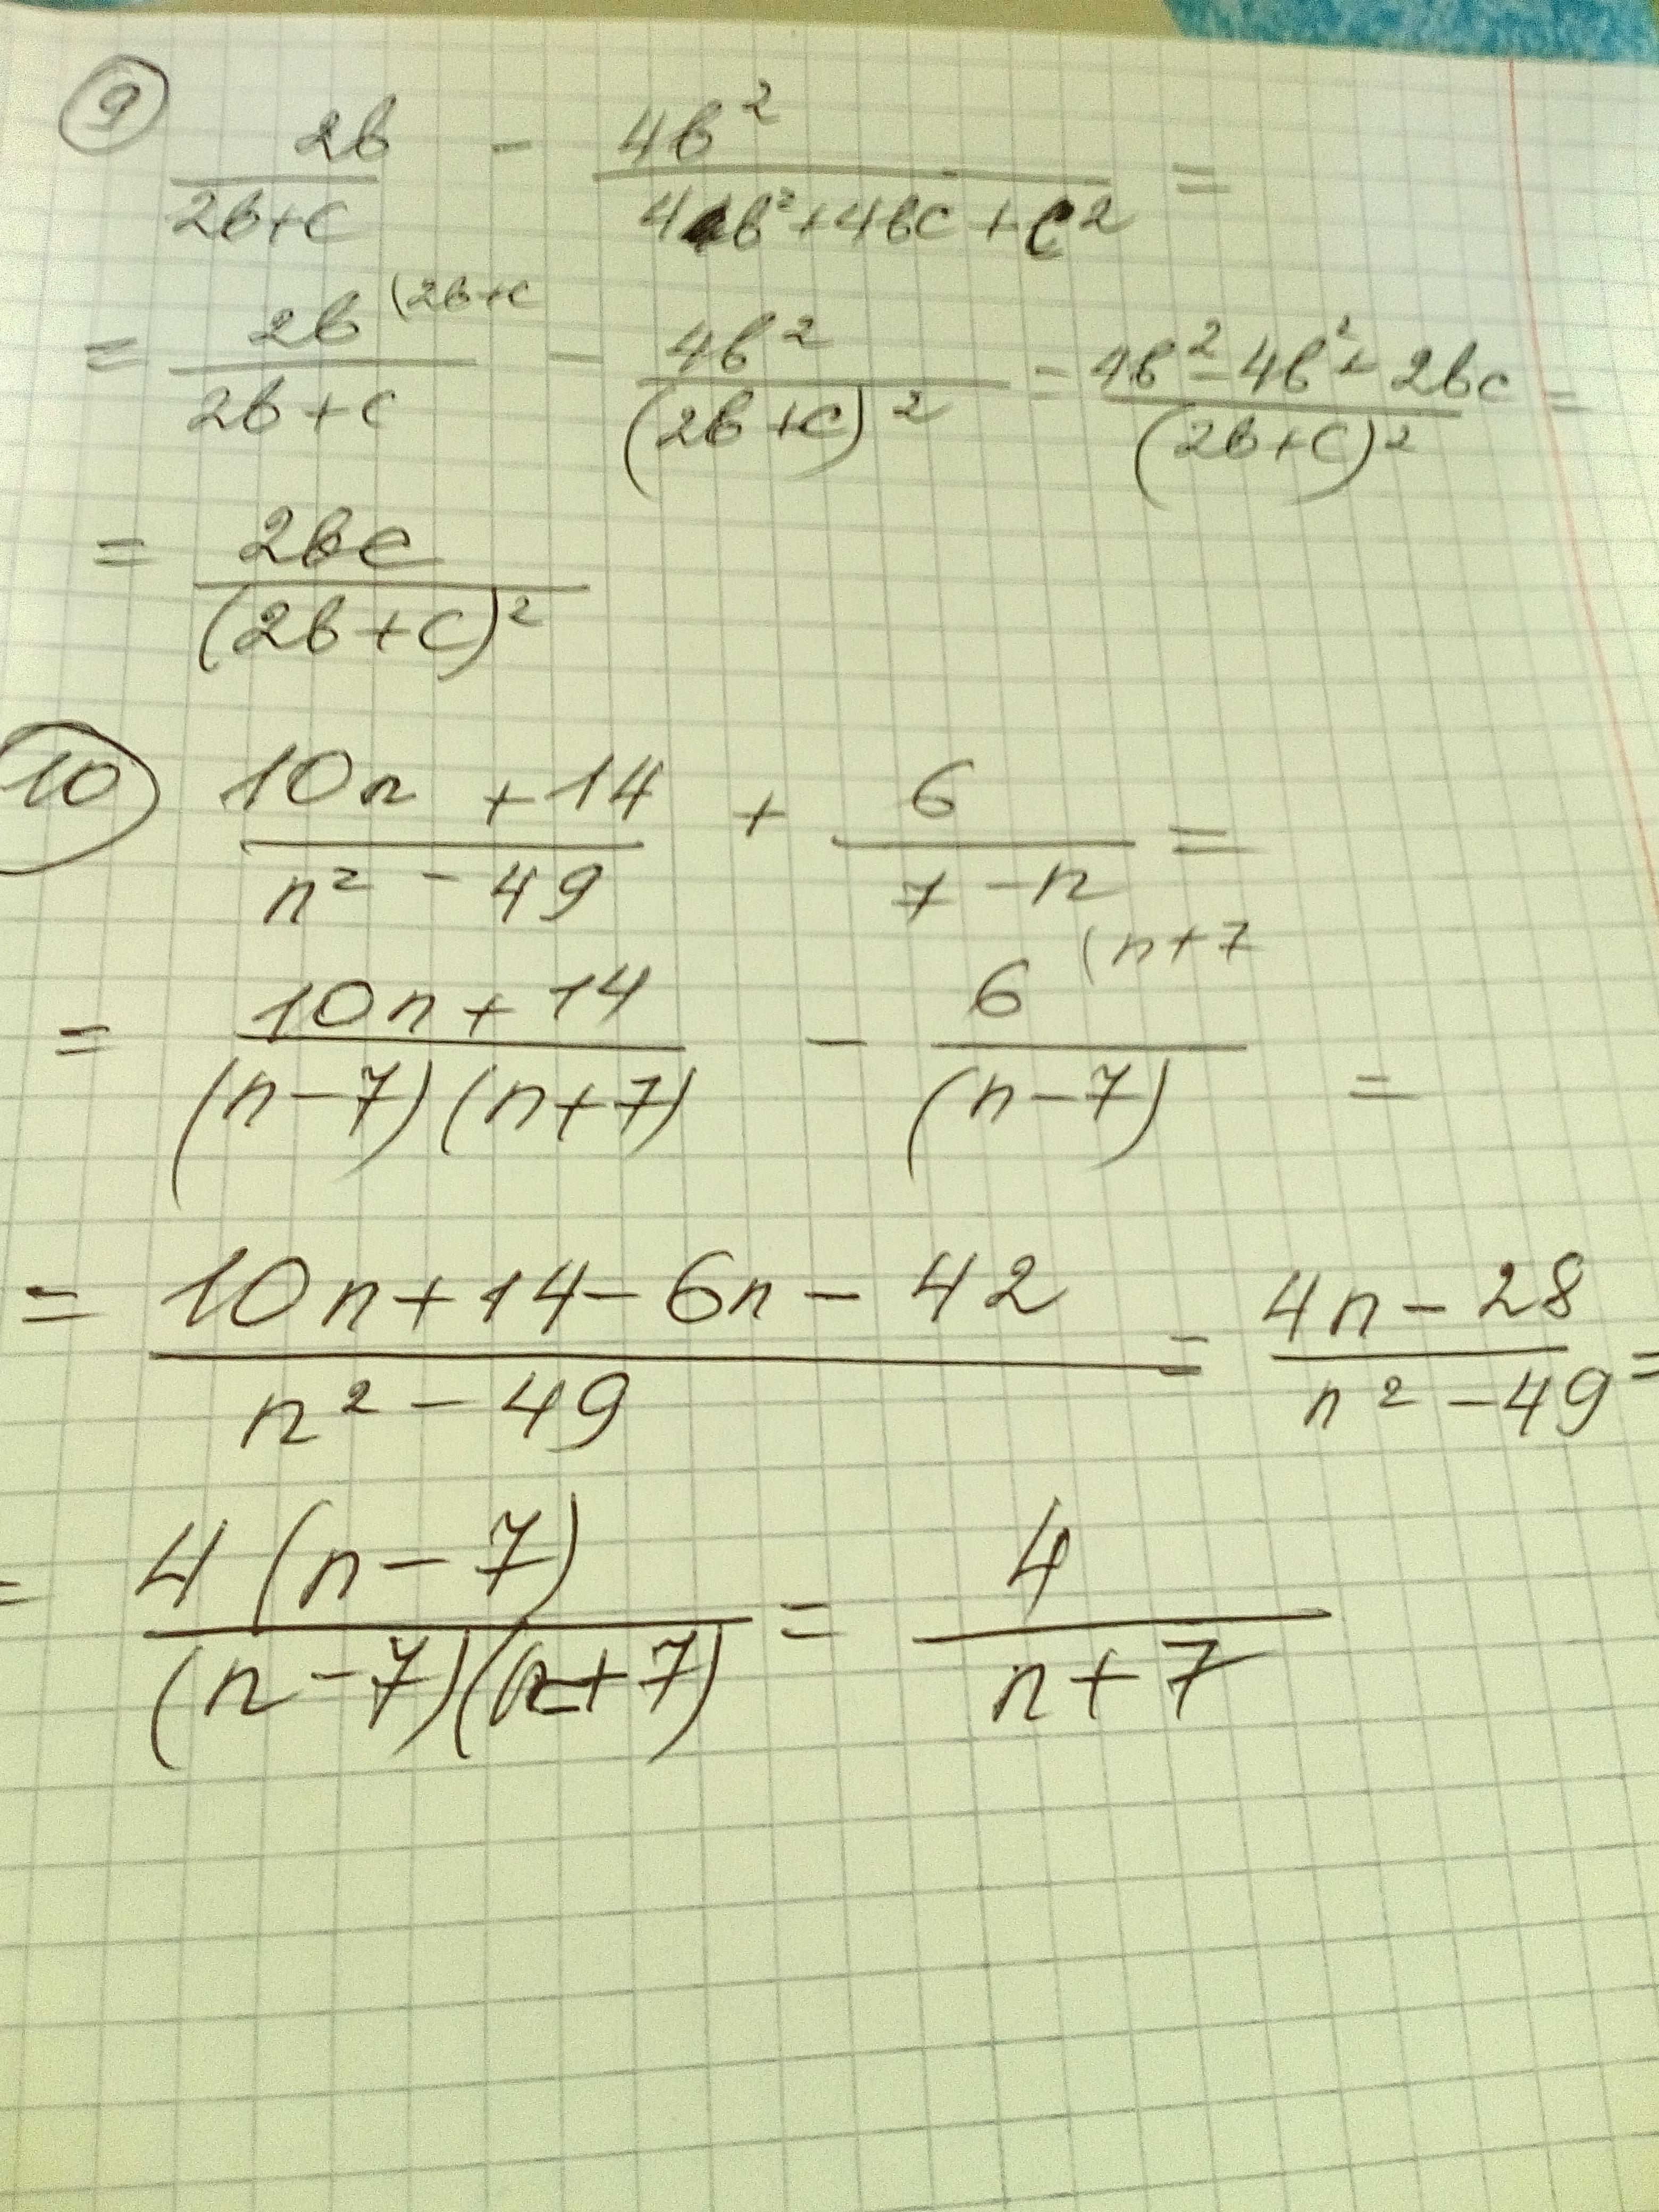 9
2b/(2b+c) - 4b²/(4b²+4bc+c²) =
= 2b (2b+c/(2b+c) - 4b²/(2b+c)² = (4b²-4b²+2bc)/(2b+c)² =
= 2bc/(2b+c)²
10 (10n+14)/(n²-49) + 6/(7-n) =
= (10n+14)/((n-7)(n+7)) - 6 (n+7/(n-7) =
= (10n+14-6n-42)/(n²-49) = (4n-28)/(n²-49) =
= 4(n-7)/((n-7)(n+7)) = 4/(n+7)